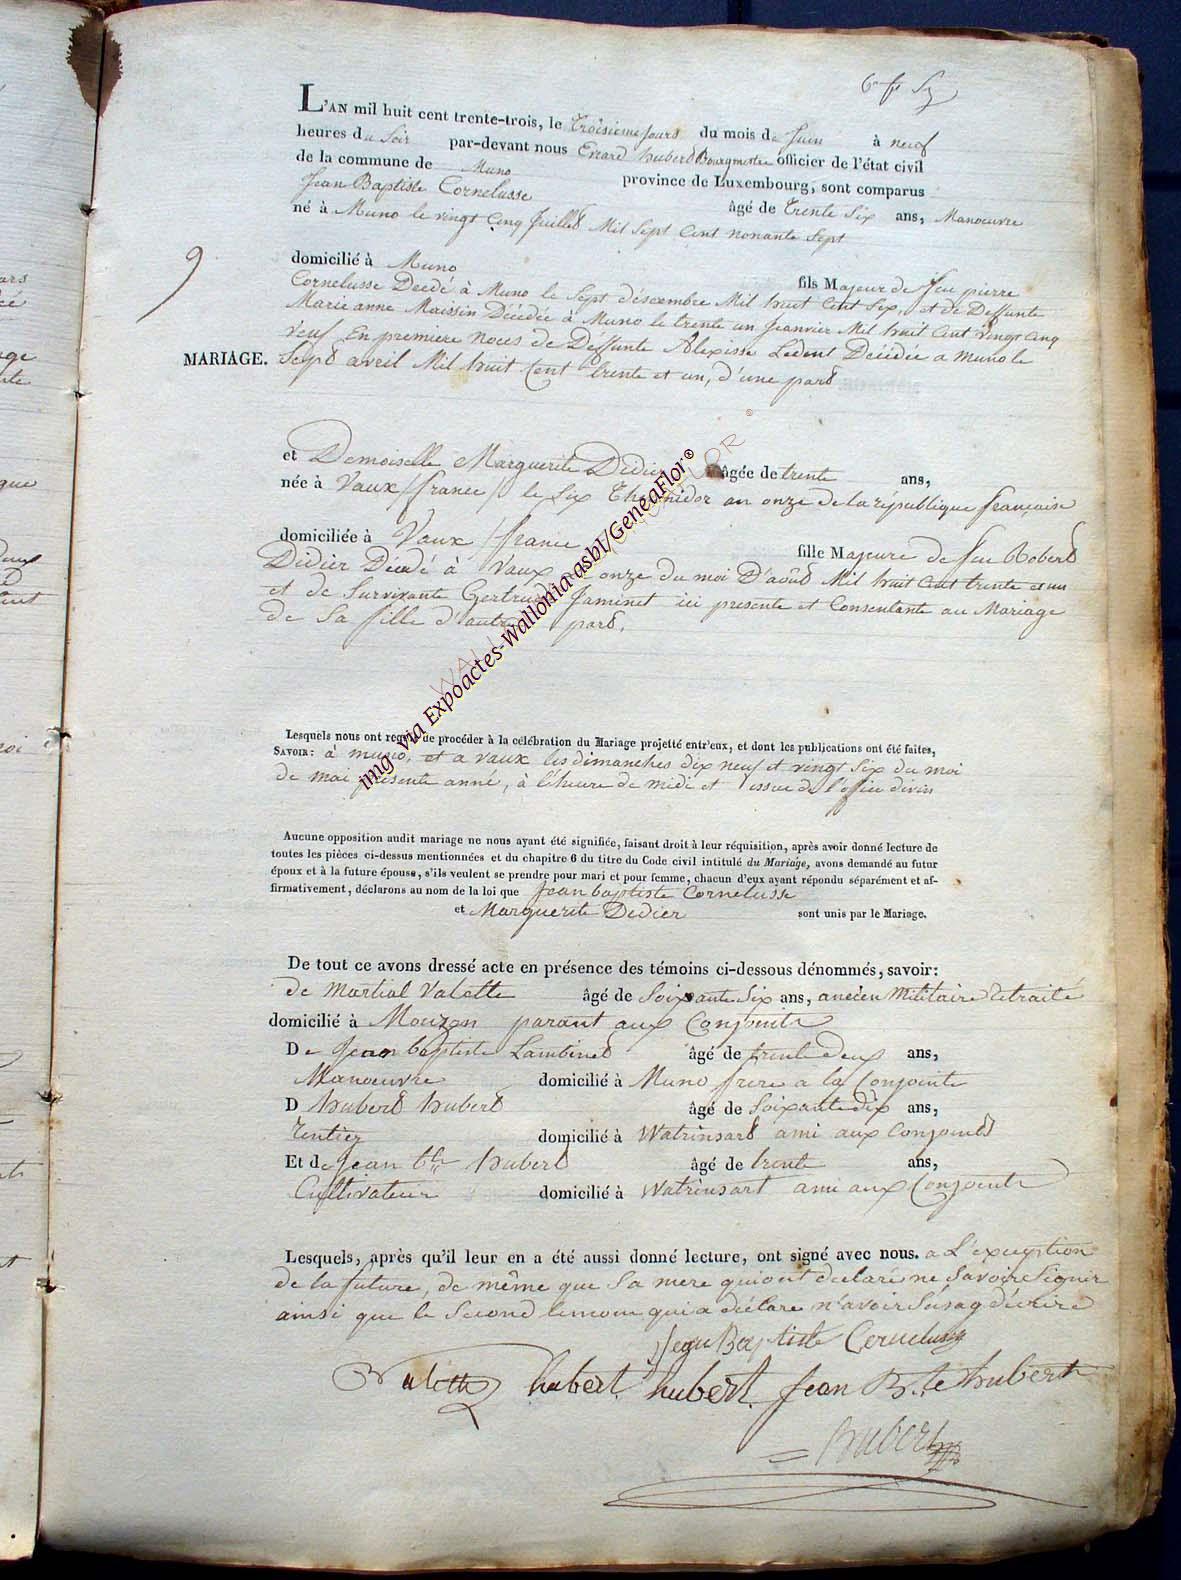 L'AN mil huit cent trente-trois, le troisieme jours du mois de Juin à neuf
heures du Soir par-devant nous Erard hubert Bourgmestre officier de l'état civil
de la commune de Muno province de Luxembourg, sont comparus
Jean Baptiste Cornelusse âgé de trente Six ans, Manoeuvre
né à Muno le vingt Cinq Juillet Mil Sept Cent nonante Sept
9
domicilié à Muno fils Majeur de feu pierre
Cornelusse Decdé à Muno le Sept désembre Mil huit Cent Six, et de Deffunte
Marie anne Maissin Décédée à Muno le trente un Jeanvier Mil huit Cent vingt Cinq
veuf En premiere noces de Deffunte Alexisse Ledent Décédée a Muno le
MARIAGE.
Sept avril Mil huit Cent trente et un, d'une part
et Demoiselle Marguerite Didier âgée de trente ans,
née à Vaux / france / le Six Thermidor an onze de la république française
domiciliée à Vaux / france fille Majeure de feu Robert
Didier Decdé à Vaux le onze du moi D'août Mil huit Cent trente et un
et de Survivante Gertrude Jaminet ici presente et Consentante au Mariage
de Sa fille d'autre part.
Lesquels nous ont requis de procéder à la célébration du Mariage projetté entr'eux, et dont les publications ont été faites,
SAVOIR: à muno, et a vaux les dimanches dix neuf et vingt Six du moi
de mai présente anné, à l'heure de midi et issue de l'office divin
Aucune opposition audit mariage ne nous ayant été signifiée, faisant droit à leur réquisition, après avoir donné lecture de
toutes les pièces ci-dessus mentionnées et du chapitre 6 du titre du Code civil intitulé du Mariage, avons demandé au futur
époux et à la future épouse, s'ils veulent se prendre pour mari et pour femme, chacun d'eux ayant répondu séparément et af-
firmativement, déclarons au nom de la loi que Jean baptiste Cornelusse
et Marguerite Didier sont unis par le Mariage.
De tout ce avons dressé acte en présence des témoins ci-dessous dénommés, savoir:
de Martial Valette âgé de Soixante Six ans, ancien Militaire retraité
domicilié à Mouzon parant aux Conjoints
De Jean baptiste Lambinet âgé de trente deux ans,
Manoeuvre domicilié à Muno frere a la Conjointe
D hubert hubert âgé de Soixante dix ans,
rentier domicilié à Watrinsart ami aux Conjoints
Et de Jean bte hubert âgé de trente ans,
Cultivateur domicilié à Watrinsart ami aux Conjoints
Lesquels, après qu'il leur en a été aussi donné lecture, ont signé avec nous. a L'exception
de la future, de même que Sa mere qui ont declaré ne Savoir Signer
ainsi que le Second temoin qui a déclare n'avoir l'usag d'écrire
Jean Baptiste Cornelusse
Valette hubert hubert Jean B.te hubert
hubert
img via Expoactes-Wallonia asbl/GeneaFlor®